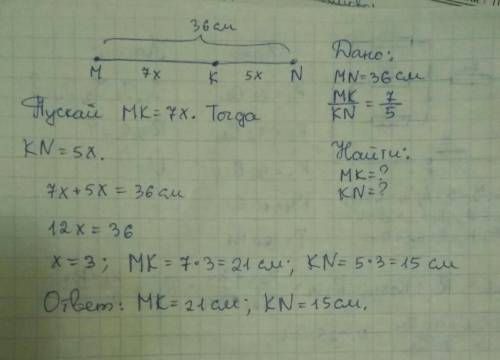 36 см
M 7x K 5x N
Дано:
MN = 36 см
MK/KN = 7/5
Найти:
MK = ?
KN = ?
Пускай MK = 7x. Тогда
KN = 5x.
7x + 5x = 36 см
12x = 36
x = 3; MK = 7 * 3 = 21 см; KN = 5 * 3 = 15 см
Ответ: MK = 21 см; KN = 15 см.